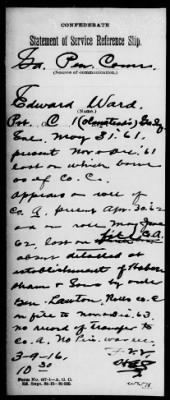 CONFEDERATE
Statement of Service Reference Slip.
Ga. Pen. Com.
(Source of communication.)
Edward Ward.
(Name.)
Pvt. C 1 (Olmstead's) Ga. Inf
Enl. May 31. '61,
present Nov & Dec. '61
last on which borne
as of Co. C.
Appears on roll of
Co. A. present Apr. 30. '62
and on roll May & June
62, last on file Co. A.
absent detailed at
establishment of
& Sons by order
Gen. Lawton, Rolls Co. C
on file to Nov & Dec. 63.
no record of transfer to
Co. A. No Pris. war rec.
3-9-16.
10 30
Form No. 487-1—A. G. O.